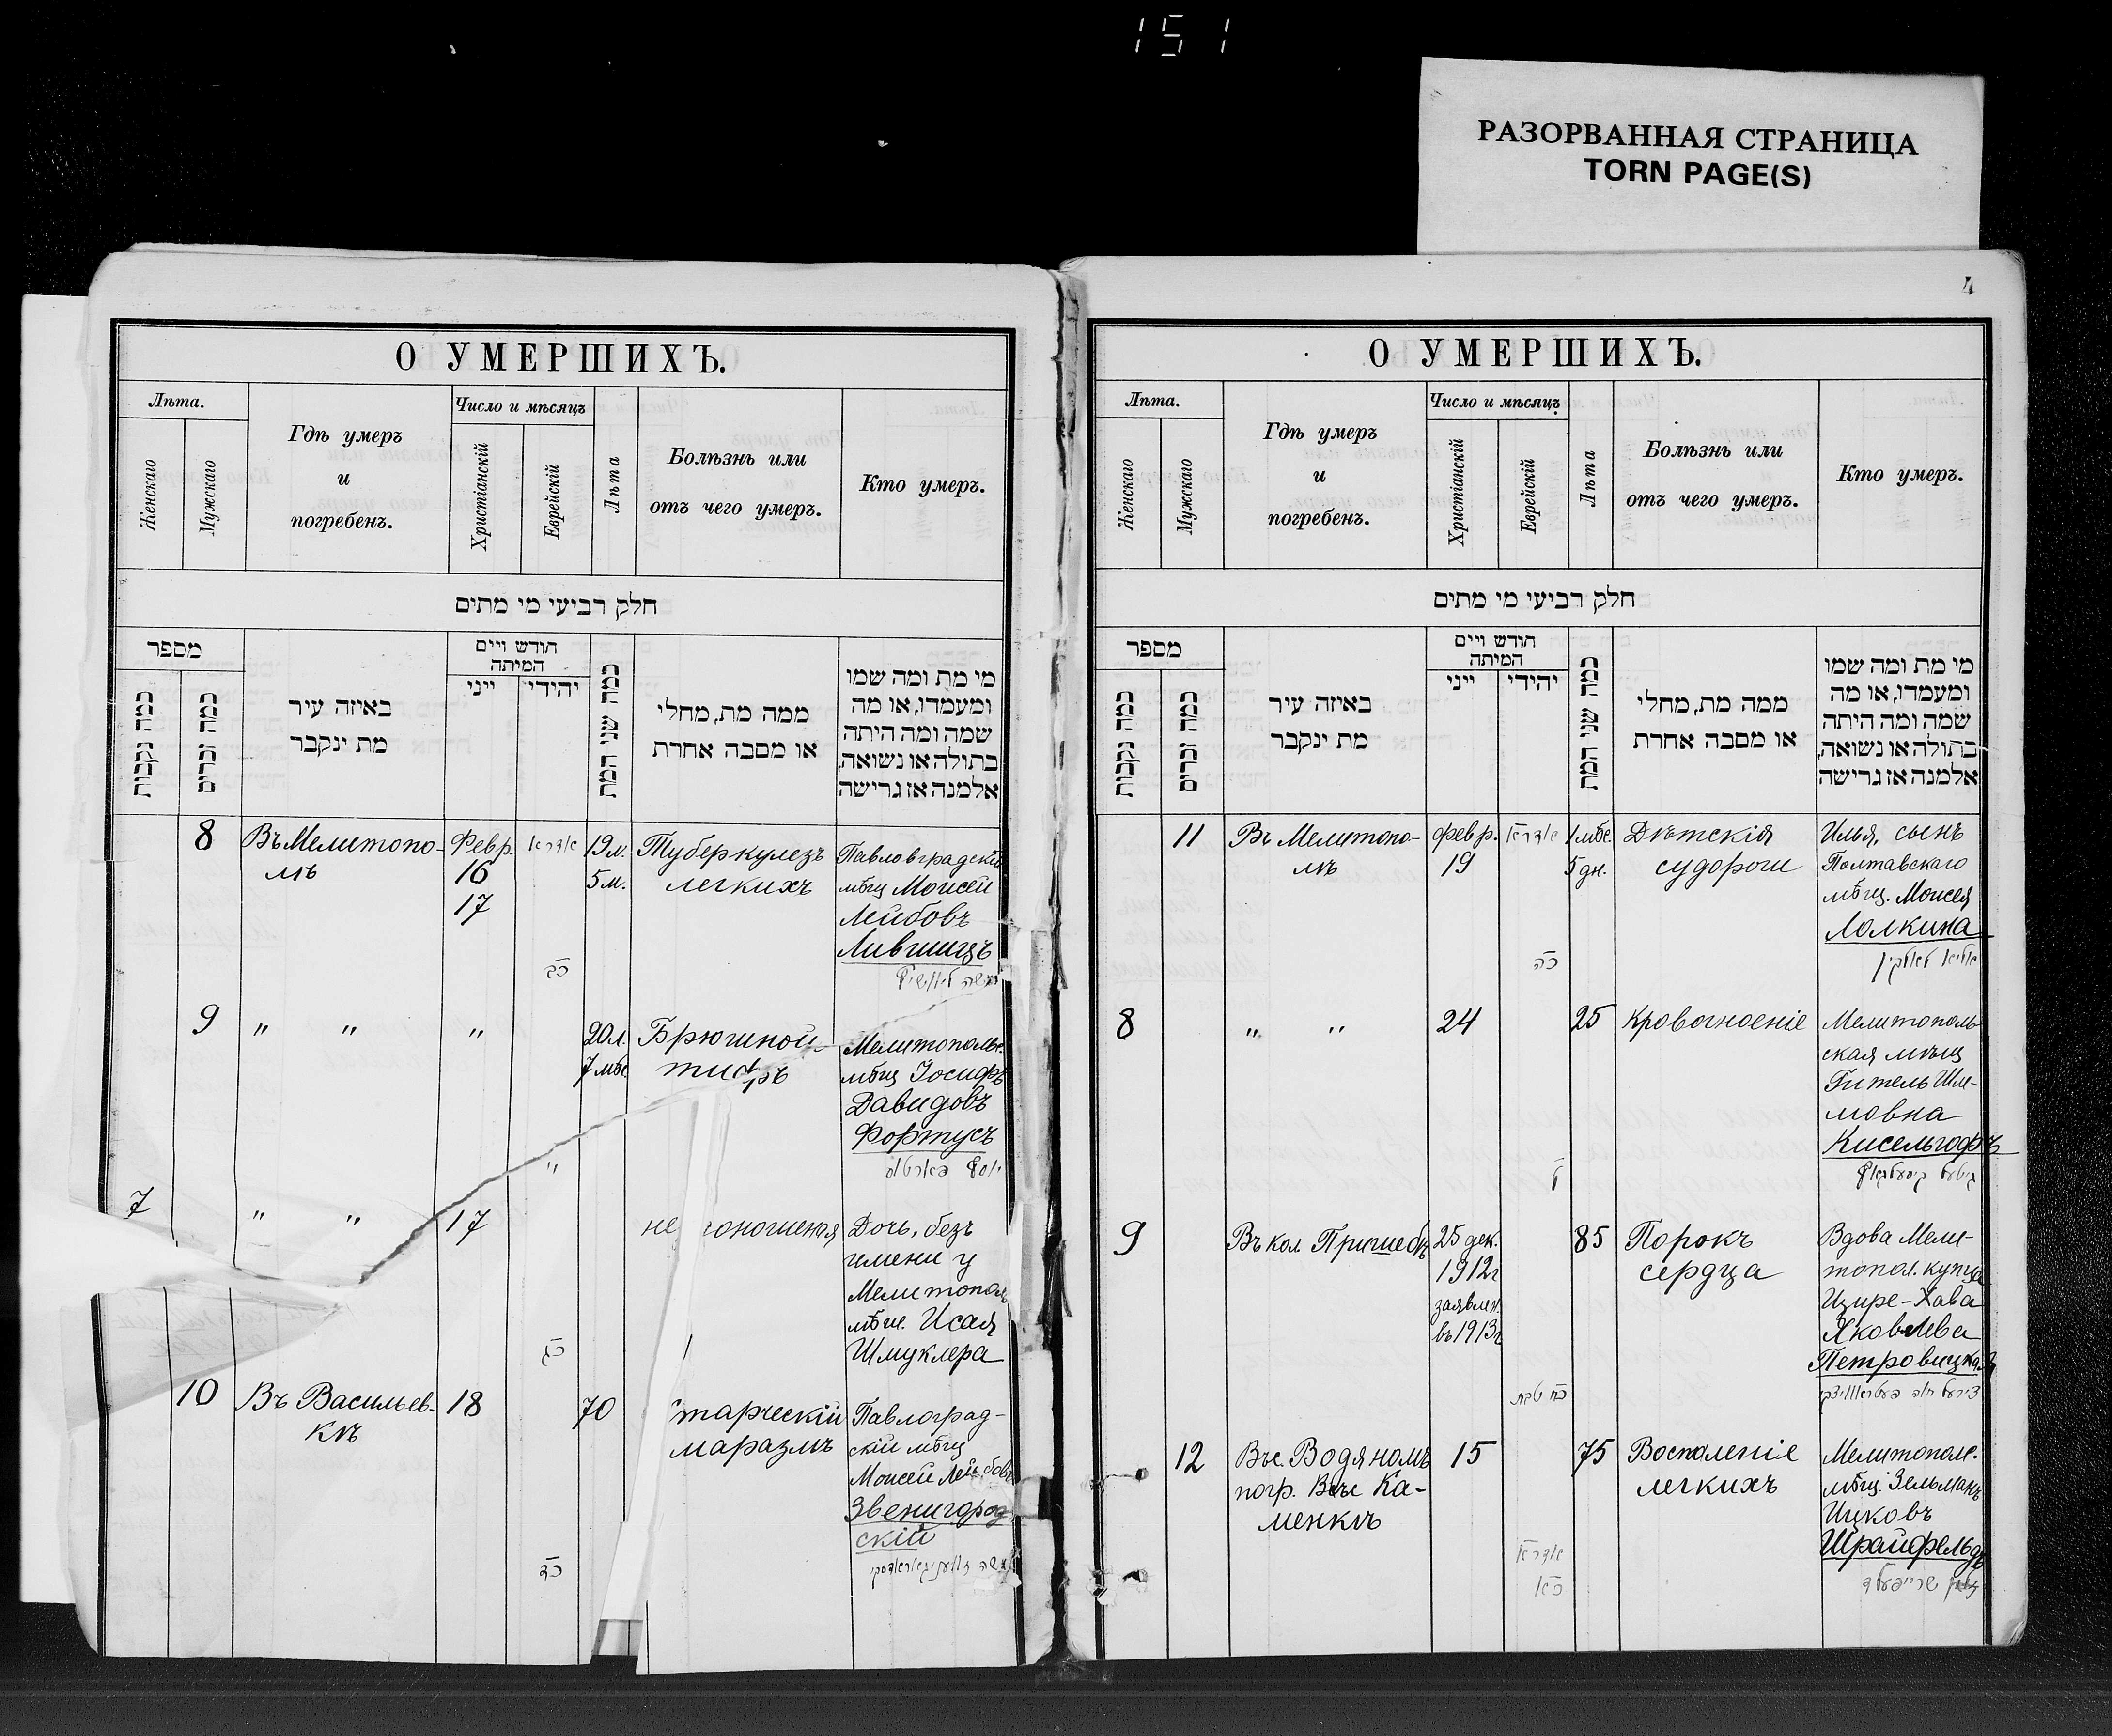 151
РАЗОРВАННАЯ СТРАНИЦА
TORN PAGE(S)
О УМЕРШИХЪ.
Лѣта.
Женскаго
Мужскаго
Гдѣ умеръ
и
погребенъ.
Число и мѣсяцъ
Христіанскій
Еврейскій
Лѣта
Болѣзнь или
отъ чего умеръ.
Кто умеръ.
חלק רביעי מי מתים
מספר
כמה נקבות
כמה זכרים
באיזה עיר
מת ינקבר
חודש ויים
המיתה
ייני
יהידי
כמה שני המת
ממה מת, מחלי
או מסבה אחרת
מי מת ומה שמו
ומעמדו, או מה
שמה ומה היתה
בתולה או נשואה,
אלמנה אז גרישה
8
Въ Мелитопо-
лѣ
Февр.
16
17
אדרא
כב
19 л.
5 м.
Туберкулезъ
легкихъ
Павловградскій
мѣщ Моисей
Лейбовъ
Лившицъ
משה ליוושיץ
9
" "
"
"
20 л.
7 мѣс
Брюшной
тифъ
Мелитопольс.
мѣщ Іосифъ
Давидовъ
Фортусъ
יוסף פארטוס
7
" "
17
כג
недоношеная
Дочь, безъ
имени у
Мелитопол
мѣщ. Исая
Шмуклера
10
Въ Васильев-
кѣ
18
כד
70
Старческій
маразмъ
Павлоград-
скій мѣщ
Моисей Лейбовъ
Звенигород
скій
О УМЕРШИХЪ.
4
Лѣта.
Женскаго
Мужскаго
Гдѣ умеръ
и
погребенъ.
Число и мѣсяцъ
Христіанскій
Еврейскій
Лѣта
Болѣзнь или
отъ чего умеръ.
Кто умеръ.
חלק רביעי מי מתים
מספר
כמה נקבות
כמה זכרים
באיזה עיר
מת ינקבר
חודש ויים
המיתה
ייני
יהידי
כמה שני המת
ממה מת, מחלי
או מסבה אחרת
מי מת ומה שמו
ומעמדו, או מה
שמה ומה היתה
בתולה או נשואה,
אלמנה אז גרישה
11
Въ Мелитопо-
лѣ
февр.
19
אדרא
כה
1 мѣс.
5 дн.
Дѣтскія
судороги
Илья, сынъ
Полтавскаго
мѣщ. Моисея
Лолкина
8
" "
24
ל
25
Кровогноеніе
Мелитополь
ская мѣщ
Гитель Шле-
мовна
Кисельгофъ
9
Въ кол Пришебѣ
25 дек.
1912 г
заявлен.
въ 1913 г
כח טבת
85
Порокъ
сердца
Вдова Мели-
топол. купца
Цире-Хава
Яковлева
Петровицкая
12
Въ с. Водяномъ
погр. Въ с Ка-
менкѣ
15
אדרא
כא
75
Воспаленіе
легкихъ
Мелитополс.
мѣщ. Зельманъ
Ицковъ
Шрайфельдъ